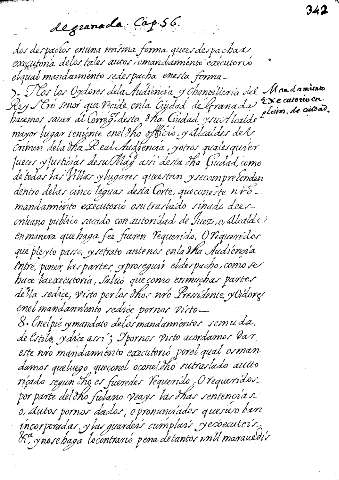 de granada. Cap. 56.
342
dos despachos en una misma forma, que es despachar
executoria de los tales autos, o mandamiento executorio
el qual mandamiento se despacha en esta forma.
7. Nos los Oydores de la Audiencia y Chancilleria del
Rey nro señor que reside en la Ciudad de Granada
hacemos saver al Corregr desta, dha Ciudad y su Alcalde
mayor lugar teniente en el dho officio, y Alcaldes del
Crimen de la dha Real Audiencia, y otros qualesquier
Jueces y Justicias de su Magd assi desta dha Ciudad, como
de todas las Villas y lugares que estan y se comprehenden
dentro de las cinco leguas desta Corte, que con este nro
mandamiento executorio o su traslado sinado de es-
crivano publico sacado con autoridad de Juez, o Alcalde
en manera que haga fee fueren requerido, o requeridos
que pleyto passo, y se trato ante nos en la dha Audiencia
entre, poner las partes y proseguir el despacho, como se
hace la executoria, salvo que como en muchas partes
della se dice, visto por los dhos nro Presidente, y Oydores
en el mandamiento se dice por nos visto
Mandamiento
Executorio en
Jurisdn. de ciudad.
8. En el pie y mandato de los mandamientos se muda
de Estilo, y dice assi; y por nos visto acordamos dar
este nro mandamiento executorio por el qual os man-
damos que luego que con el o con el dho su traslado aucto-
ricado segun dho es fueredes requerido, o requeridos
por parte del dho fulano veays las dhas sentencias
o, autos por nos dados, o pronunciados que suso van
incorporadas, y las guardeis cumplais y executeis
&ca. y no se haga lo contrario pena de tantos mill maravedis